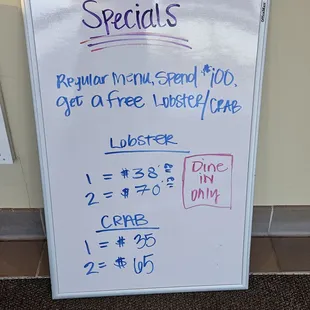 Specials
Regular Menu, Spend $100.
get a free Lobster/CRAB
Lobster
1 = $38
2 = $70
Dine
IN
only
CRAB
1 = $ 35
2 = $ 65